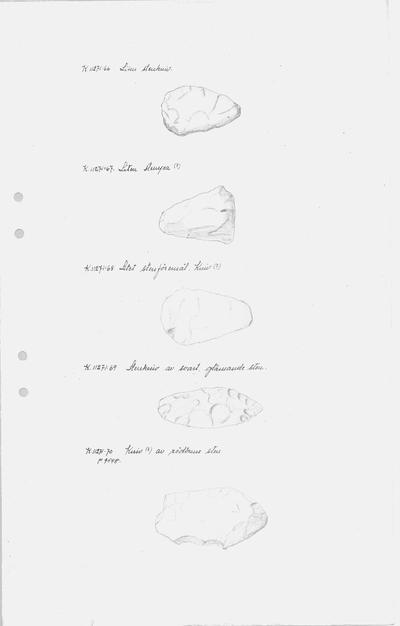 K.11271:66 Liten stenkniv.
K.11271:67. Liten stenyxa (?)
K.11271:68 Litet stenföremål. Kniv (?)
K.11271:69 Stenkniv av svart, glänsande sten.
K.11271:70 Kniv (?) av rödbrun sten